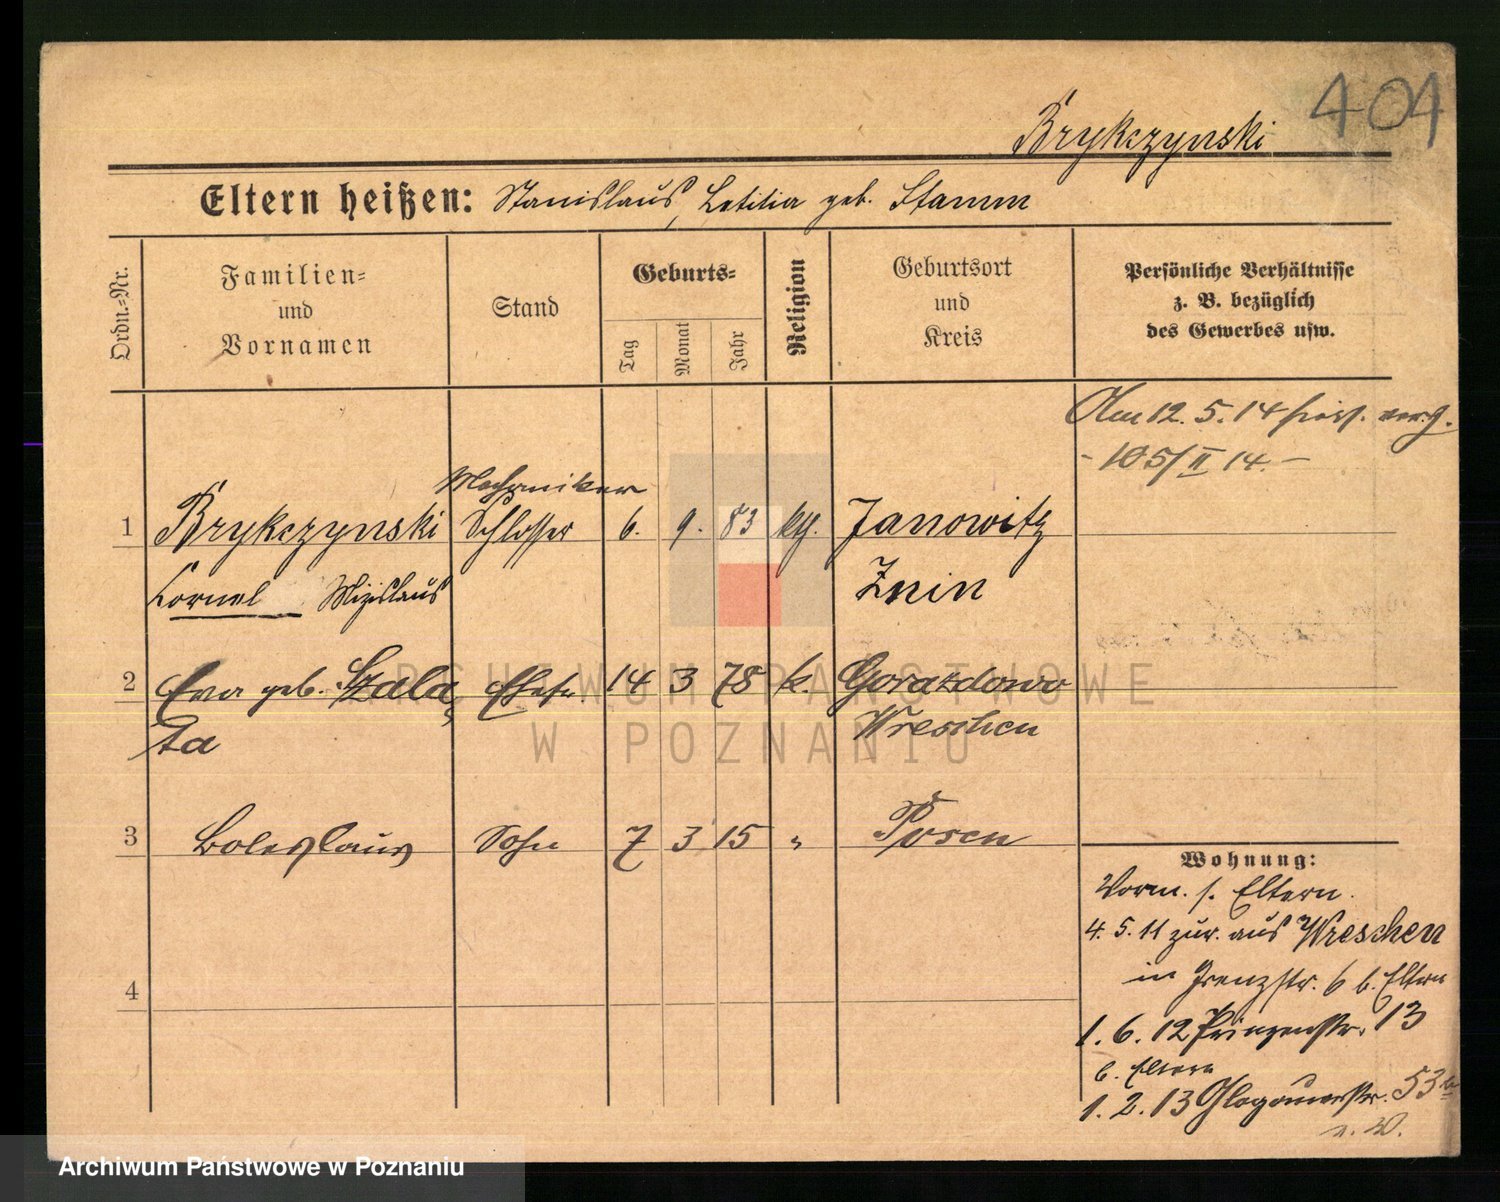 404
Brykczynski
Eltern heißen: Stanislaus, Letitia geb. Stamm
Ordn.=Nr.
Familien=
und
Vornamen
Stand
Geburts=
Tag
Monat
Jahr
Religion
Geburtsort
und
Kreis
Persönliche Verhältnisse
z. B. bezüglich
des Gewerbes usw.
Am 12. 5. 14
- 105/II 14. -
Mechaniker
1 Brykczynski Schlosser 6. 9. 83 kth. Janowitz
Cornel Mizislaus Znin
2 Eva geb. Szala Ehefr. 14 3 78 k. Gorazdowo
ta Wreschen
3 Boleslaus Sohn 7 3 15 " Posen
4
Wohnung:
Vorm. s. Eltern.
4. 5. 11 zur. aus Wreschen
in Grenzstr. 6 b. Eltern
1. 6. 12 Prinzenstr. 13
b. Eltern
1. 2. 13 Glogauerstr. 53
ARCHIWUM PAŃSTWOWE
W POZNANIU
Archiwum Państwowe w Poznaniu